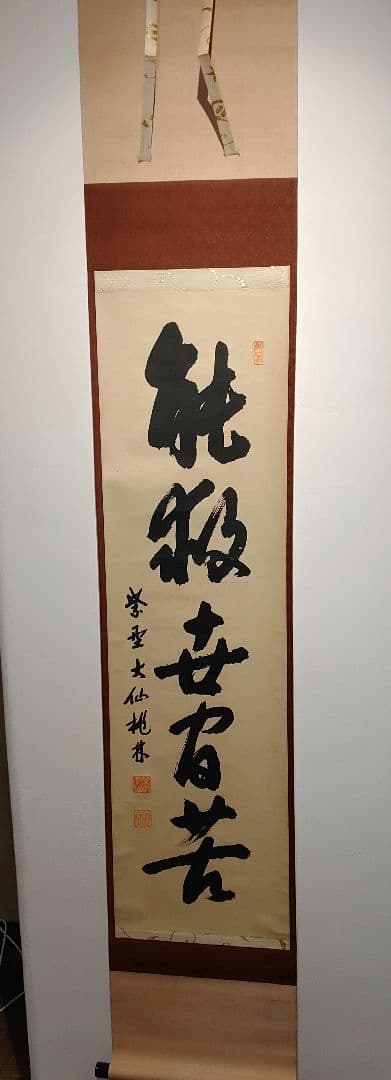 能救世間苦
紫野大仙桃林